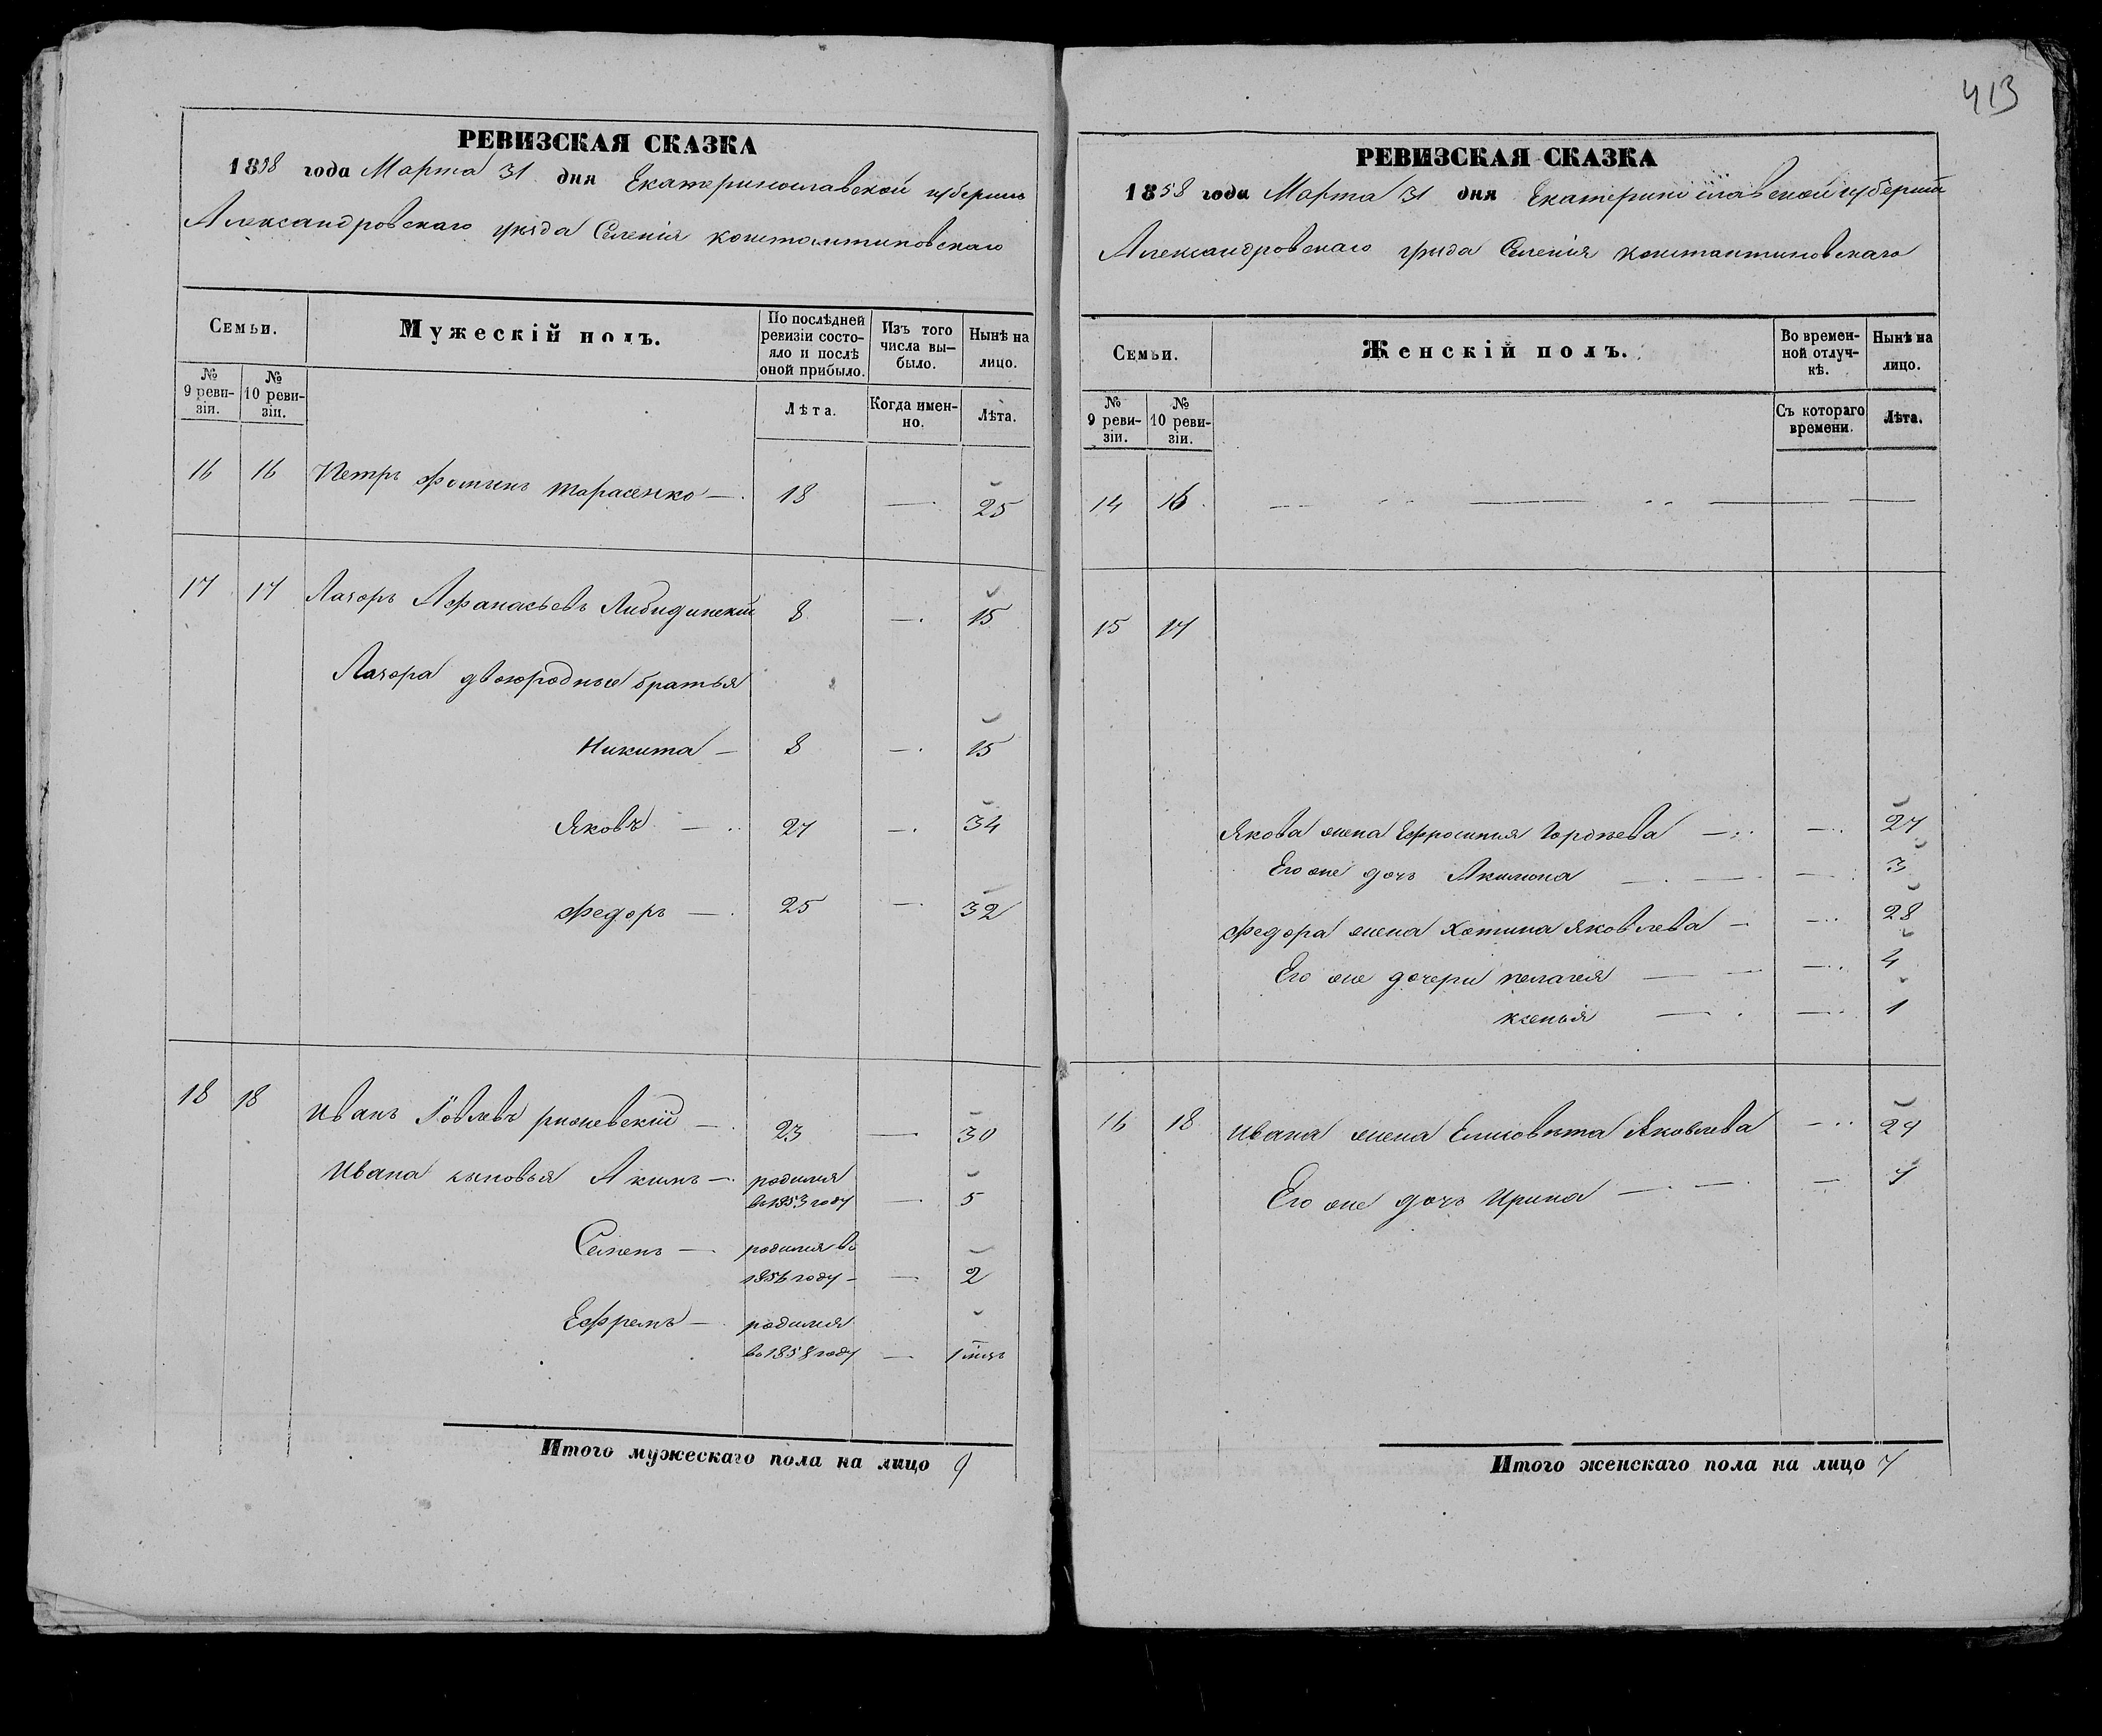 413
РЕВИЗСКАЯ СКАЗКА
1858 года Марта 31 дня Екатеринославской губернiи
Александровскаго уѣзда Селенiя Константиновскаго
Семьи.
Мужескiй полъ.
По послѣдней ревизiи состояло и послѣ оной прибыло.
Изъ того числа выбыло.
Нынѣ на лицо.
№ 9 ревизiи.
№ 10 ревизiи.
Лѣта.
Когда именно.
Лѣта.
16 16 Петръ Фоминъ Тарасенко — 18 — 25
17 17 Лазоръ Афанасьевъ 8 — 15
Лазора двоюродные братья
Никита — 8 — 15
Яковъ — 27 — 34
Федоръ — 25 — 32
18 18 Иванъ — 23 — 30
Ивана сыновья Акимъ — родился
въ 1853 году — 5
Семенъ — родился въ
1856 году — — 2
Ефремъ — родился
въ 1858 году — 1 мѣсъ
Итого мужескаго пола на лицо 9
РЕВИЗСКАЯ СКАЗКА
1858 года Марта 31 дня Екатеринославской губернiи
Александровскаго уѣзда Селенiя Константиновскаго
Семьи.
Женскiй полъ.
Во временной отлучкѣ.
Нынѣ на лицо.
№ 9 ревизiи.
№ 10 ревизiи.
Съ котораго времени.
Лѣта.
14 16 — — —
15 17
Якова жена Ефросинiя Гордѣева — — 27
Его же дочь Акилина — — — 3
Федора жена Яковлева — — 28
Его же дочери Пелагея — — — 4
Ксенья — — 1
16 18 Ивана жена Елисовѣта Яковлева — 27
Его же дочь Ирина — — — 7
Итого женскаго пола на лицо 7